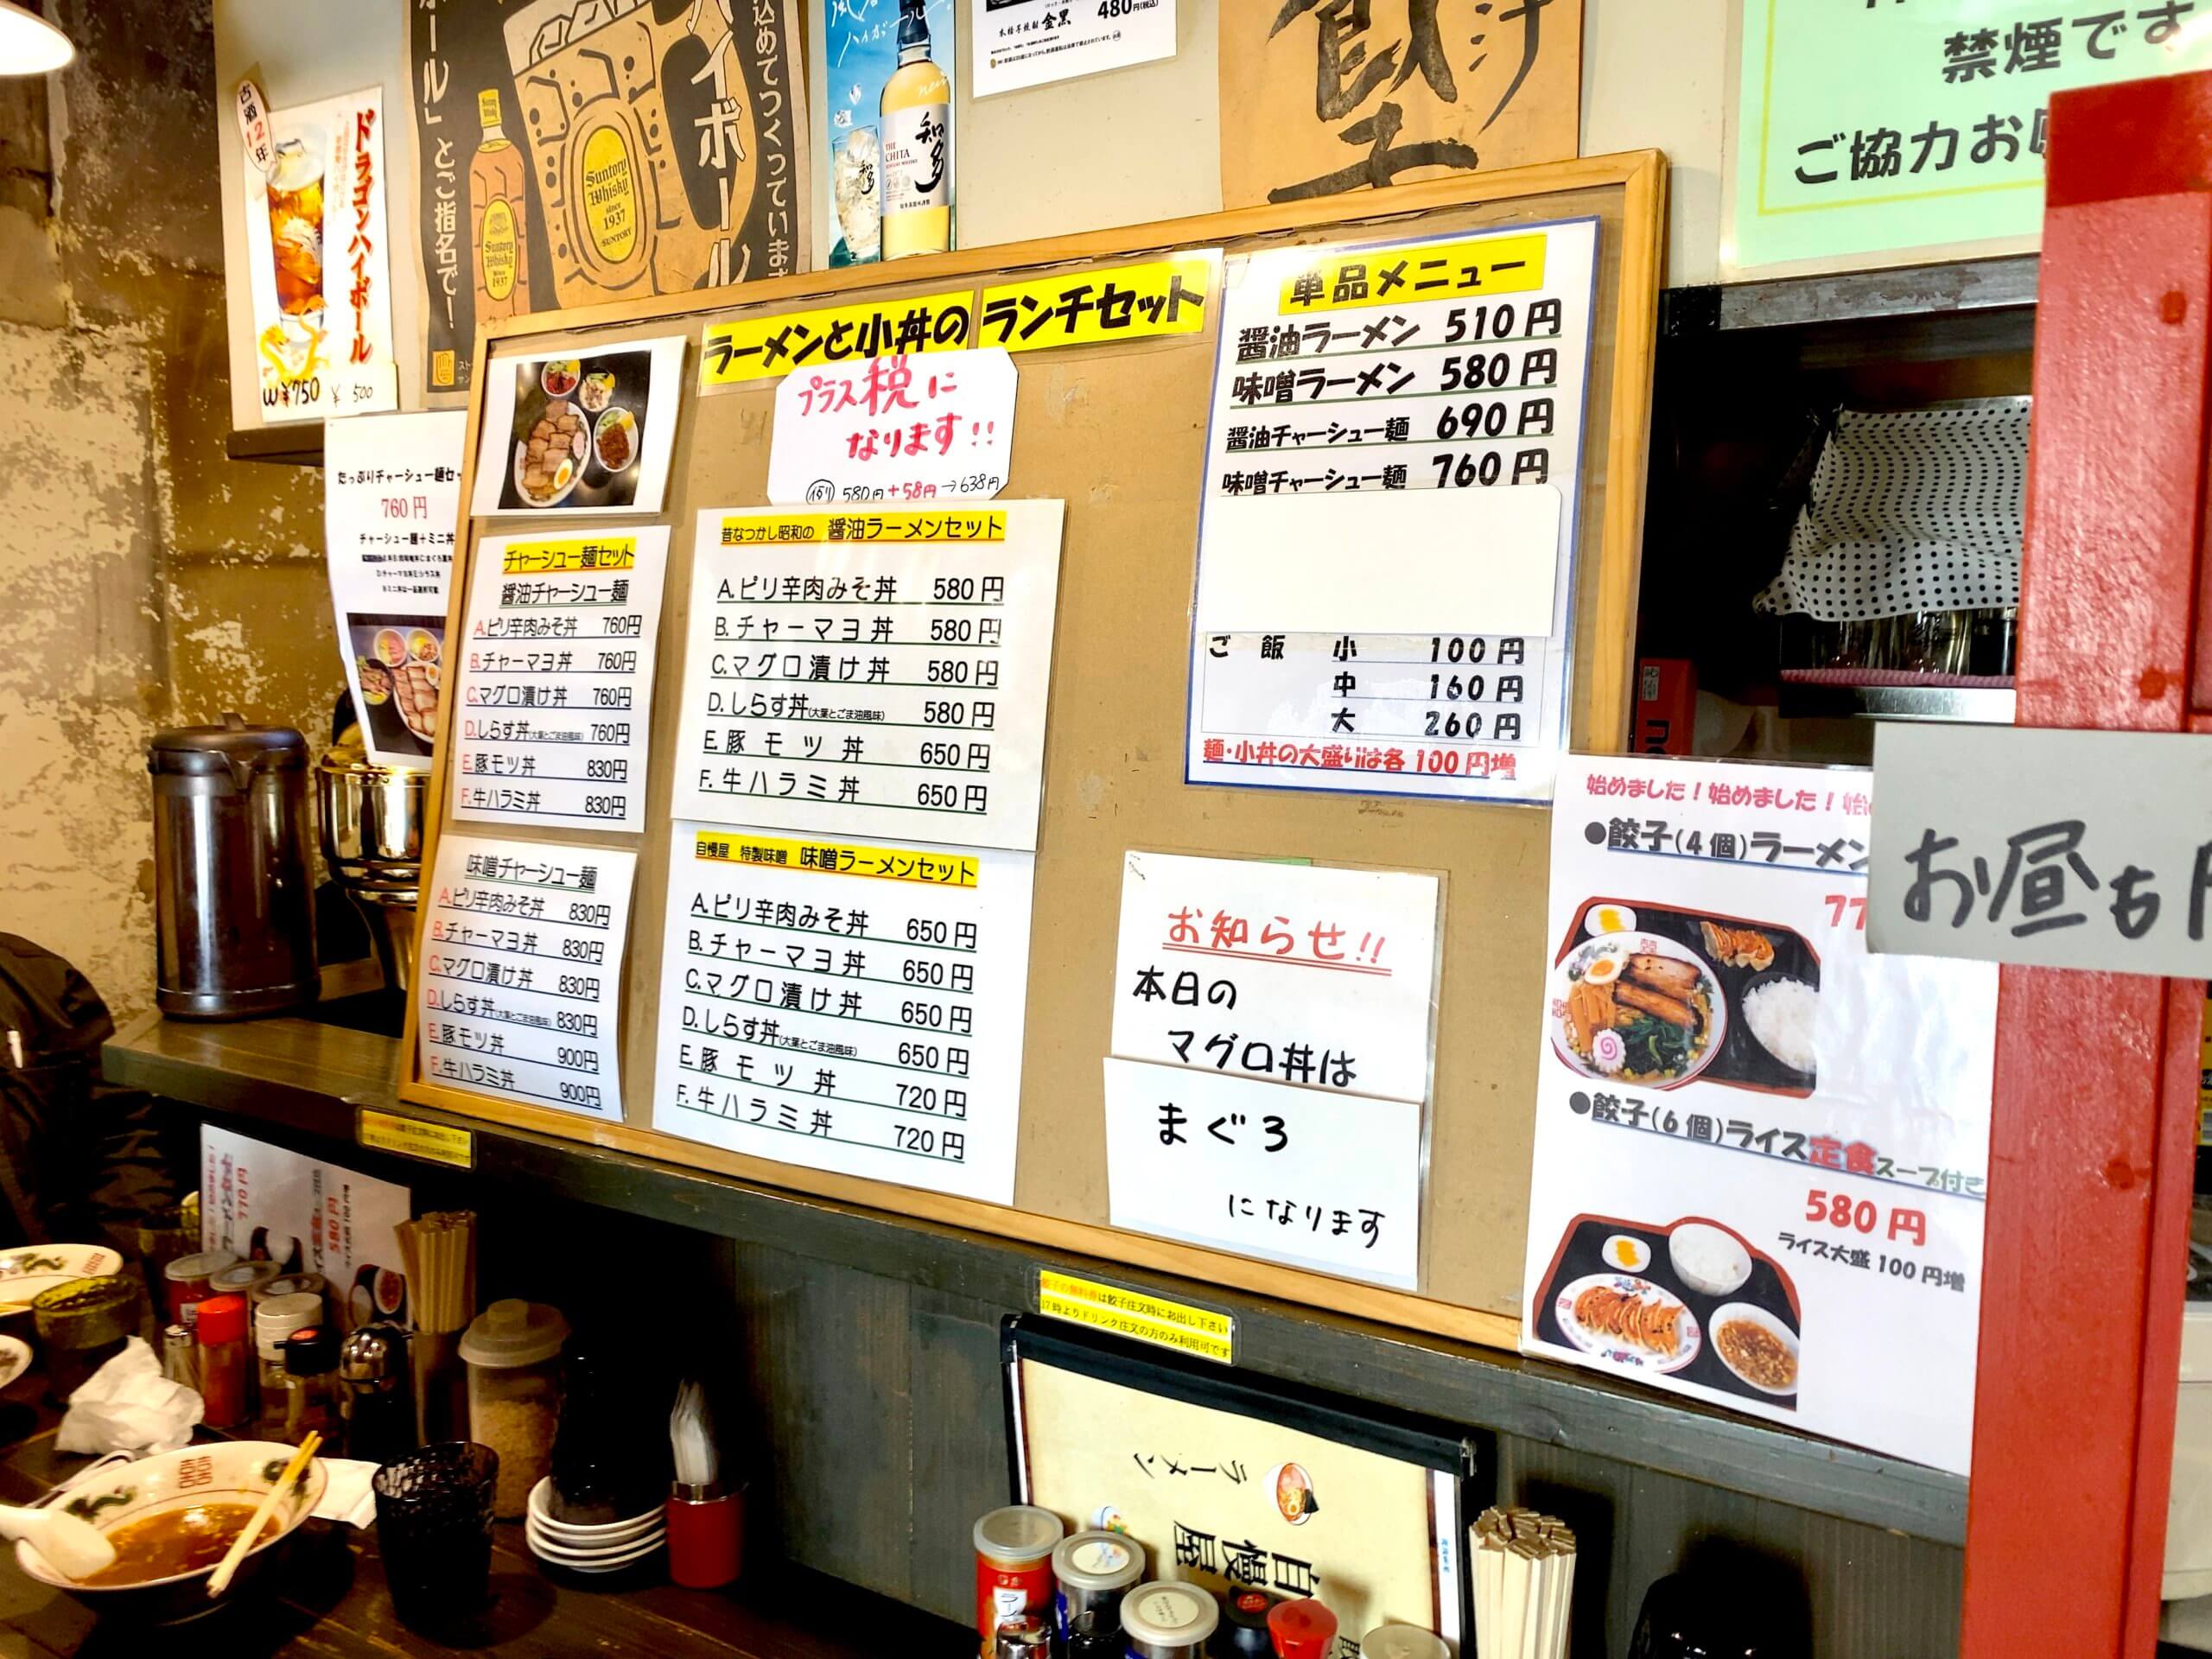 古酒12年
ドラゴンハイボール
W¥750 ¥500
ール」とご指名で!
Suntory
Whisky
since
1937
SUNTORY
ハイボール
込めてつくっています
知多
THE
CHITA
本格芋焼酎 金黒 480円(税込)
餃子
禁煙です
ご協力お
たっぷりチャーシュー麺セッ
760円
チャーシュー麺+ミニ丼
ラーメンと小丼のランチセット
プラス税に
なります!!
(例) 580円+58円→638円
チャーシュー麺セット
醤油チャーシュー麺
A.ピリ辛肉みそ丼 760円
B.チャーマヨ丼 760円
C.マグロ漬け丼 760円
D.しらす丼(大葉とごま油風味) 760円
E.豚モツ丼 830円
F.牛ハラミ丼 830円
味噌チャーシュー麺
A.ピリ辛肉みそ丼 830円
B.チャーマヨ丼 830円
C.マグロ漬け丼 830円
D.しらす丼(大葉とごま油風味) 830円
E.豚モツ丼 900円
F.牛ハラミ丼 900円
昔なつかし昭和の 醤油ラーメンセット
A.ピリ辛肉みそ丼 580円
B.チャーマヨ丼 580円
C.マグロ漬け丼 580円
D.しらす丼(大葉とごま油風味) 580円
E.豚モツ丼 650円
F.牛ハラミ丼 650円
自慢屋 特製味噌 味噌ラーメンセット
A.ピリ辛肉みそ丼 650円
B.チャーマヨ丼 650円
C.マグロ漬け丼 650円
D.しらす丼(大葉とごま油風味) 650円
E.豚モツ丼 720円
F.牛ハラミ丼 720円
単品メニュー
醤油ラーメン 510円
味噌ラーメン 580円
醤油チャーシュー麺 690円
味噌チャーシュー麺 760円
ご飯 小 100円
中 160円
大 260円
麺・小丼の大盛りは各100円増
お知らせ!!
本日の
マグロ丼は
まぐろ
になります
始めました!始めました!
●餃子(4個)ラーメン
77
●餃子(6個)ライス定食スープ付き
580円
ライス大盛100円増
お昼も
餃子の無料券は餃子注文時にお出し下さい
17時よりドリンク注文の方のみ利用可です
770円
580円
ラーメン
自慢屋